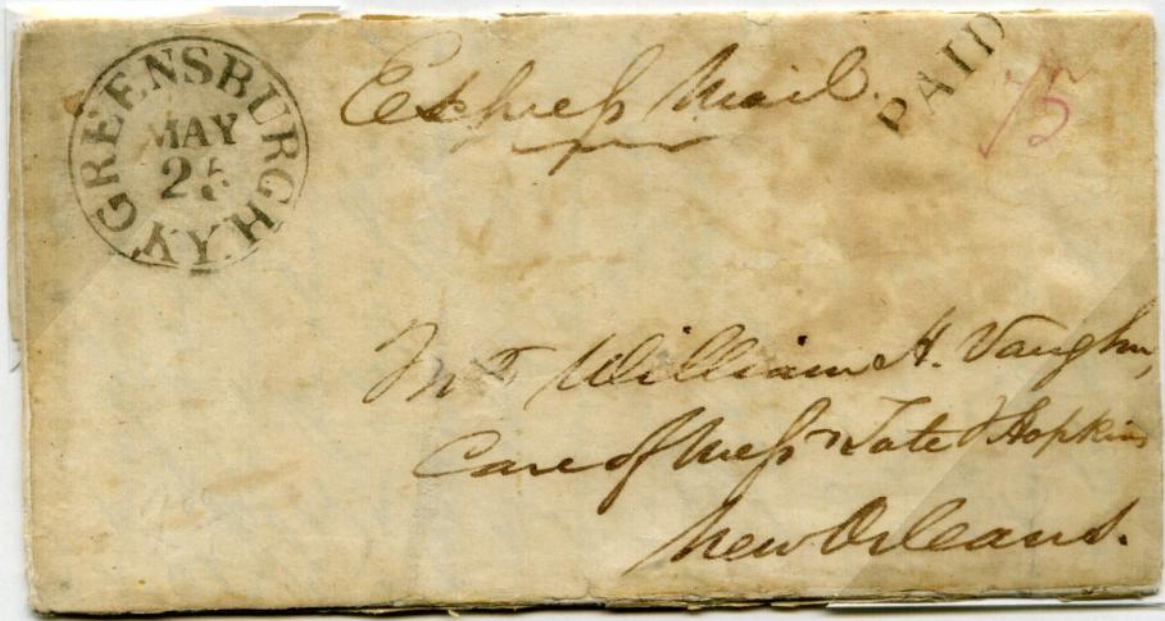 GREENSBURGH KY
MAY
25
Express Mail.
PAID
Mr William H. Vaughn,
Care of Mess Tate & Hopkins
New Orleans.